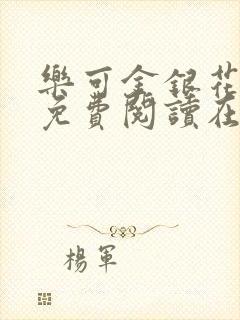 樂可金銀花
免費閱讀在
楊軍